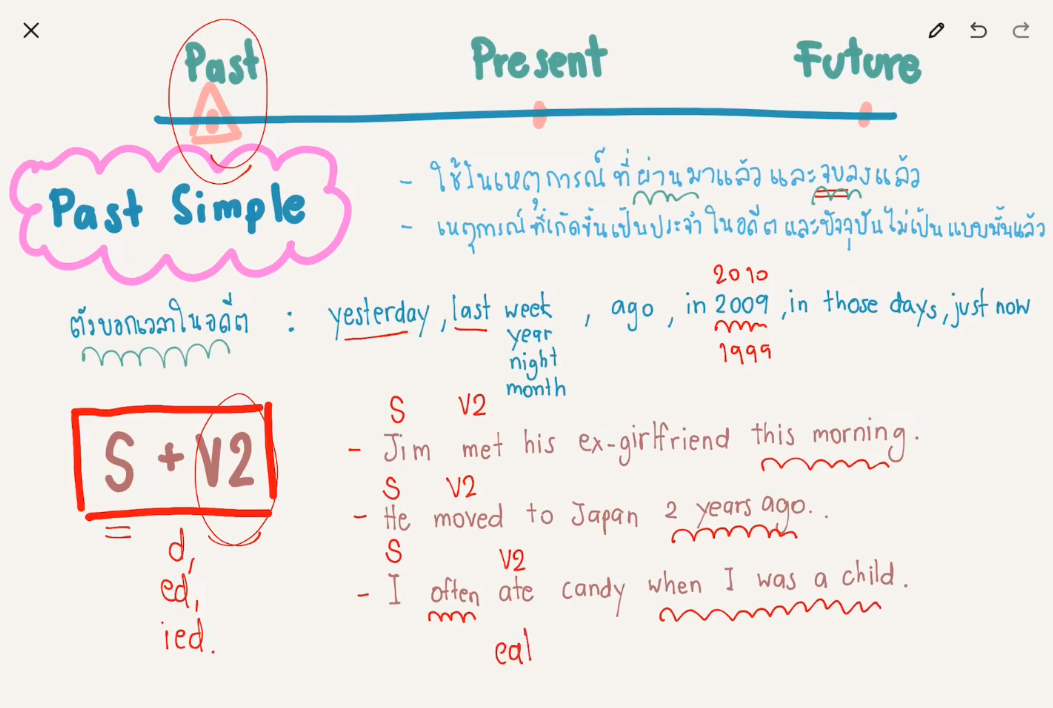 Past Present Future
Past Simple
- ใช้ในเหตุการณ์ ที่ ผ่านมาแล้ว และจบลงแล้ว
- เหตุการณ์ที่เกิดขึ้นเป็นประจำ ในอดีต และปัจจุบันไม่เป็น แบบนั้นแล้ว
2010
ตัวบอกเวลาในอดีต : yesterday, last week , ago, in 2009, in those days, just now
year
1999
night
month
S V2
S + V2
- Jim met his ex-girlfriend this morning.
S V2
- He moved to Japan 2 years ago..
d,
S V2
ed,
- I often ate candy when I was a child.
ied.
eal